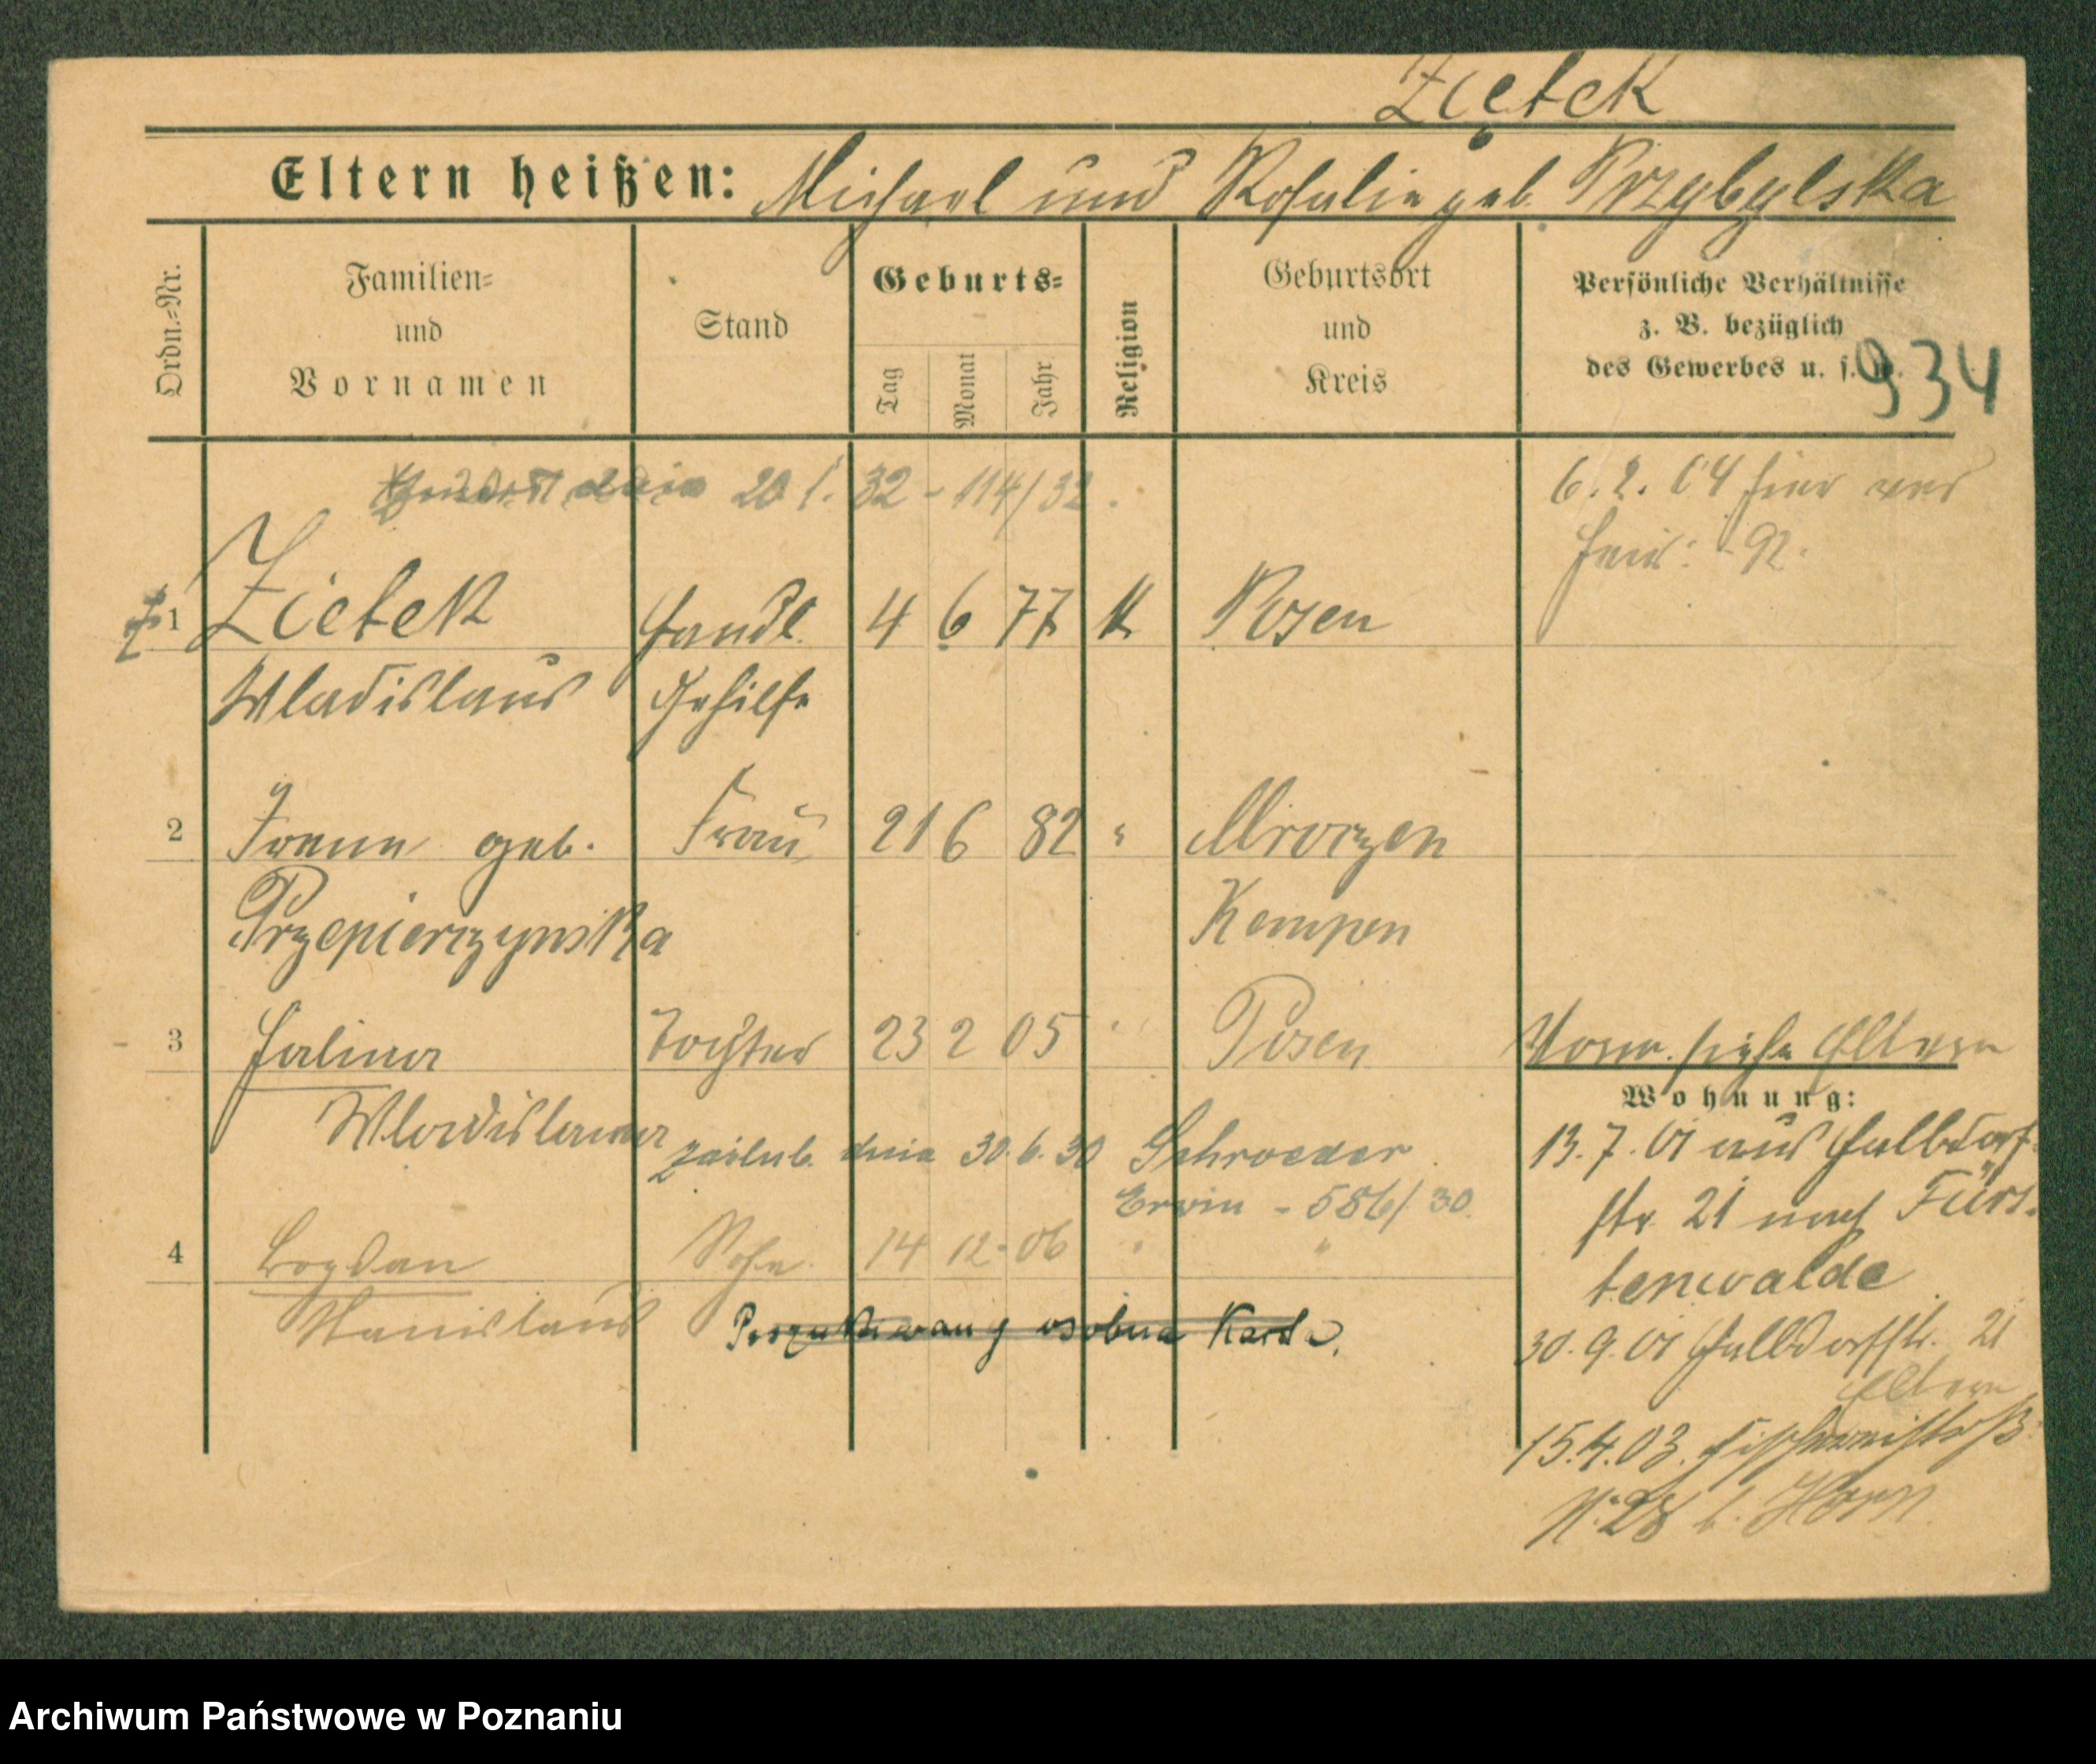 Ziętek
Eltern heißen: Michael und Rosalie geb. Przybylska
Ordn.-Nr.
Familien-
und
Vornamen
Stand
Geburts-
Tag
Monat
Jahr
Religion
Geburtsort
und
Kreis
Persönliche Verhältnisse
z. B. bezüglich
des Gewerbes u. s. w.
934
dnia 20 1. 32 - 114/32.
6. 2. 04 hier ver
heir: - 92.
1 Zietek Handl. 4 6 77 K Posen
Wladislaus Gehilfe
2 Irene geb. Frau 21 6 82 " Mroczen
Przepierzynska Kempen
3 Halina Tochter 23 2 05 " Posen
Vorw. siehe Eltern
Wohnung:
Wladislawa zaślub. dnia 30. 6. 30 Schroeder
Erwin - 586/30.
13. 7. 01 aus Halbdorf-
str 21 nach Fürs-
tenwalde
4 Bogdan Sohn 14 12. 06 " "
Stanislaus Poszukiwany osobna Karta.
30. 9. 01 Halbdorfstr. 21
Eltern
15. 4. 03.
N: 28 b. Horn
Archiwum Państwowe w Poznaniu